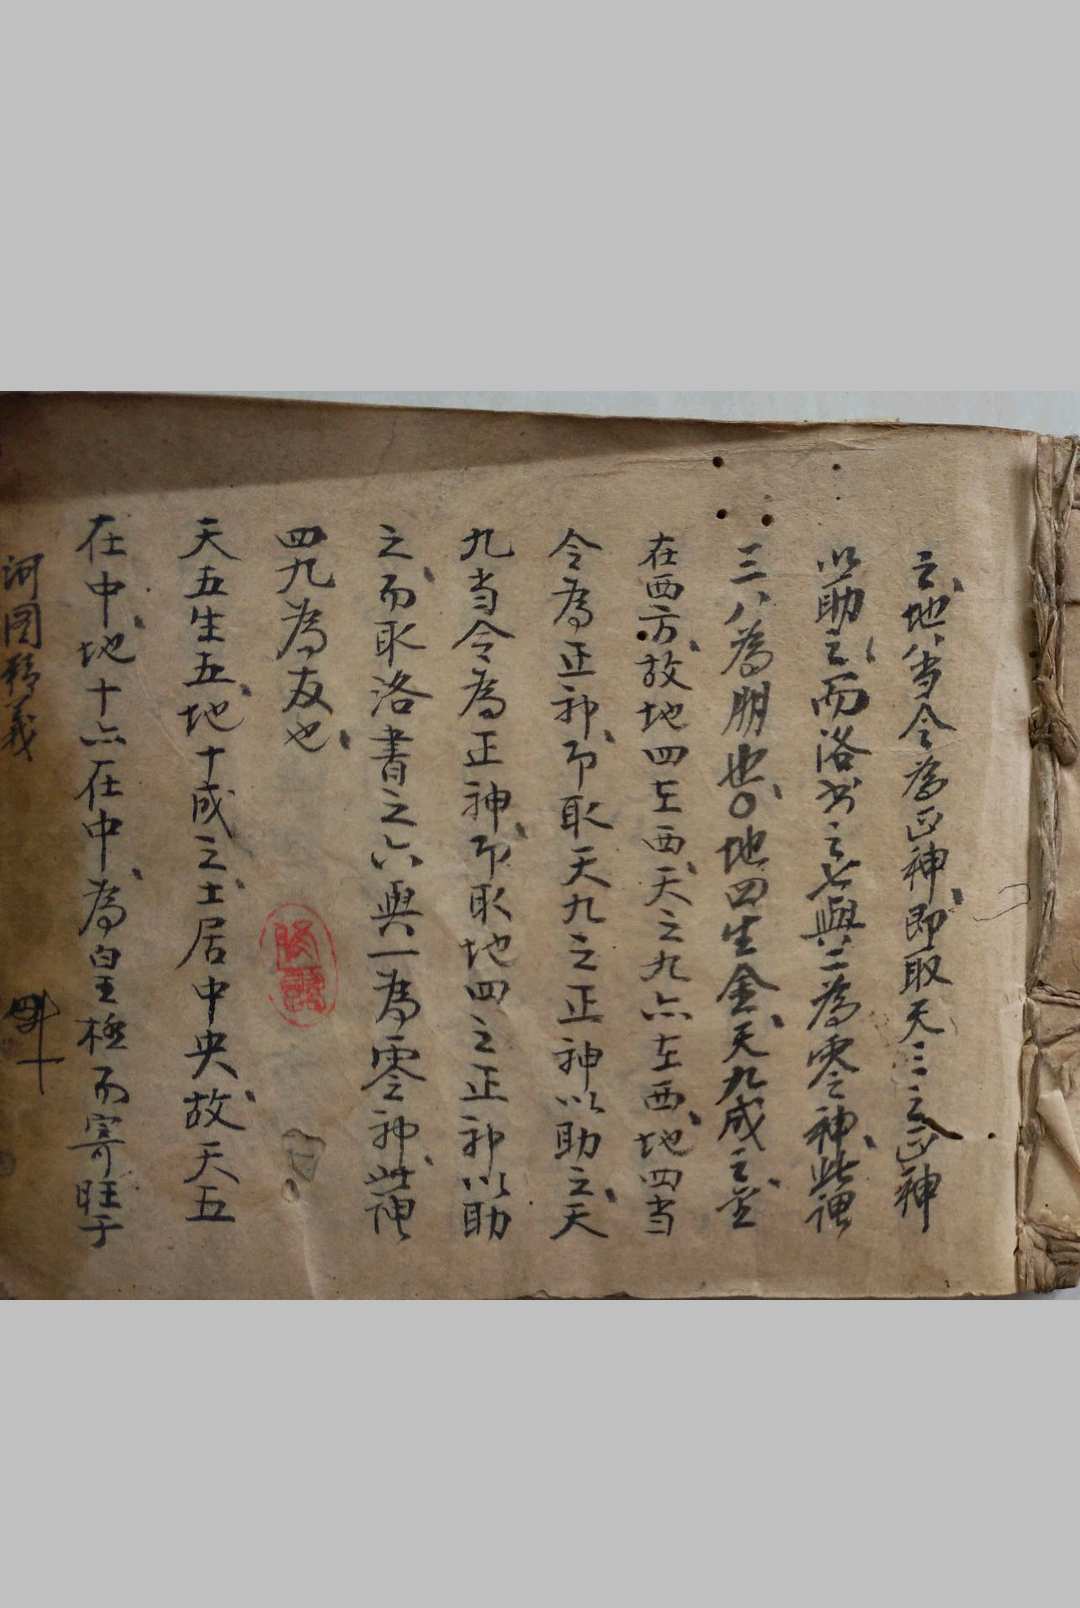 之、地八当令為正神、即取天三之正神
以助之、而洛书之七與二為零神、此谓
三八為朋也、○地四生金、天九成之、金
在西方、故地四在西、天之九亦在西、地四当
令為正神、即取天九之正神以助之、天
九当令為正神、即取地四之正神以助
之、而取洛書之六與一為零神、此谓
四九為友也、
天五生五、地十成之土、居中央、故天五
在中、地十亦在中、為皇極而寄旺于
河图精義